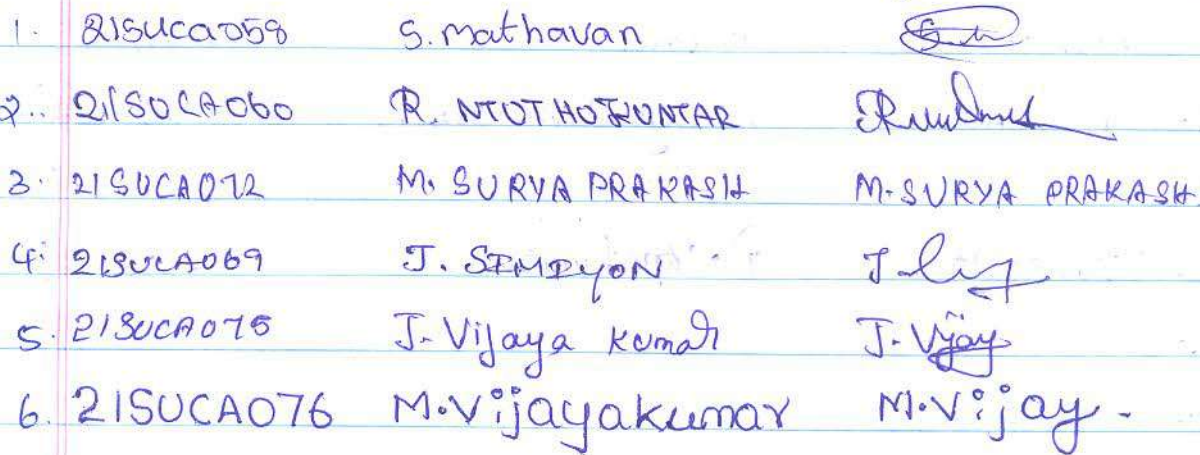 1. 21SUCA059 S. Mathavan
2. 21SUCA060 R.
3. 21SUCA072 M. SURYA PRAKASH M. SURYA PRAKASH.
4. 21SUCA069 J. SIMIYON J.
5. 21SUCA075 J. Vijaya Kumar J. Vijay
6. 21SUCA076 M. Vijayakumar M. Vijay.